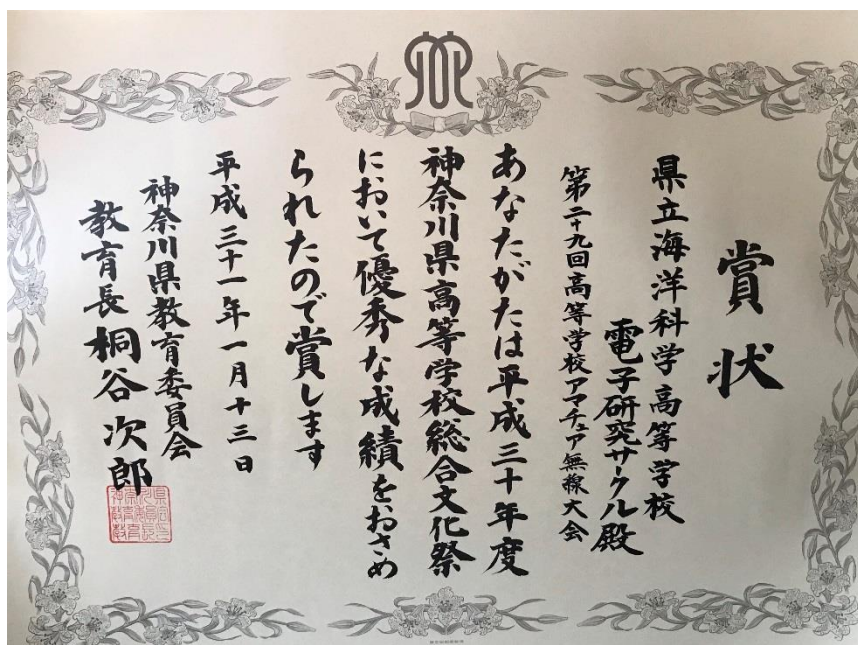 賞状
県立海洋科学高等学校
電子研究サークル殿
第二十九回高等学校アマチュア無線大会
あなたがたは平成三十年度
神奈川県高等学校総合文化祭
において優秀な成績をおさめ
られたので賞します
平成三十一年一月十三日
神奈川県教育委員会
教育長 桐谷次郎